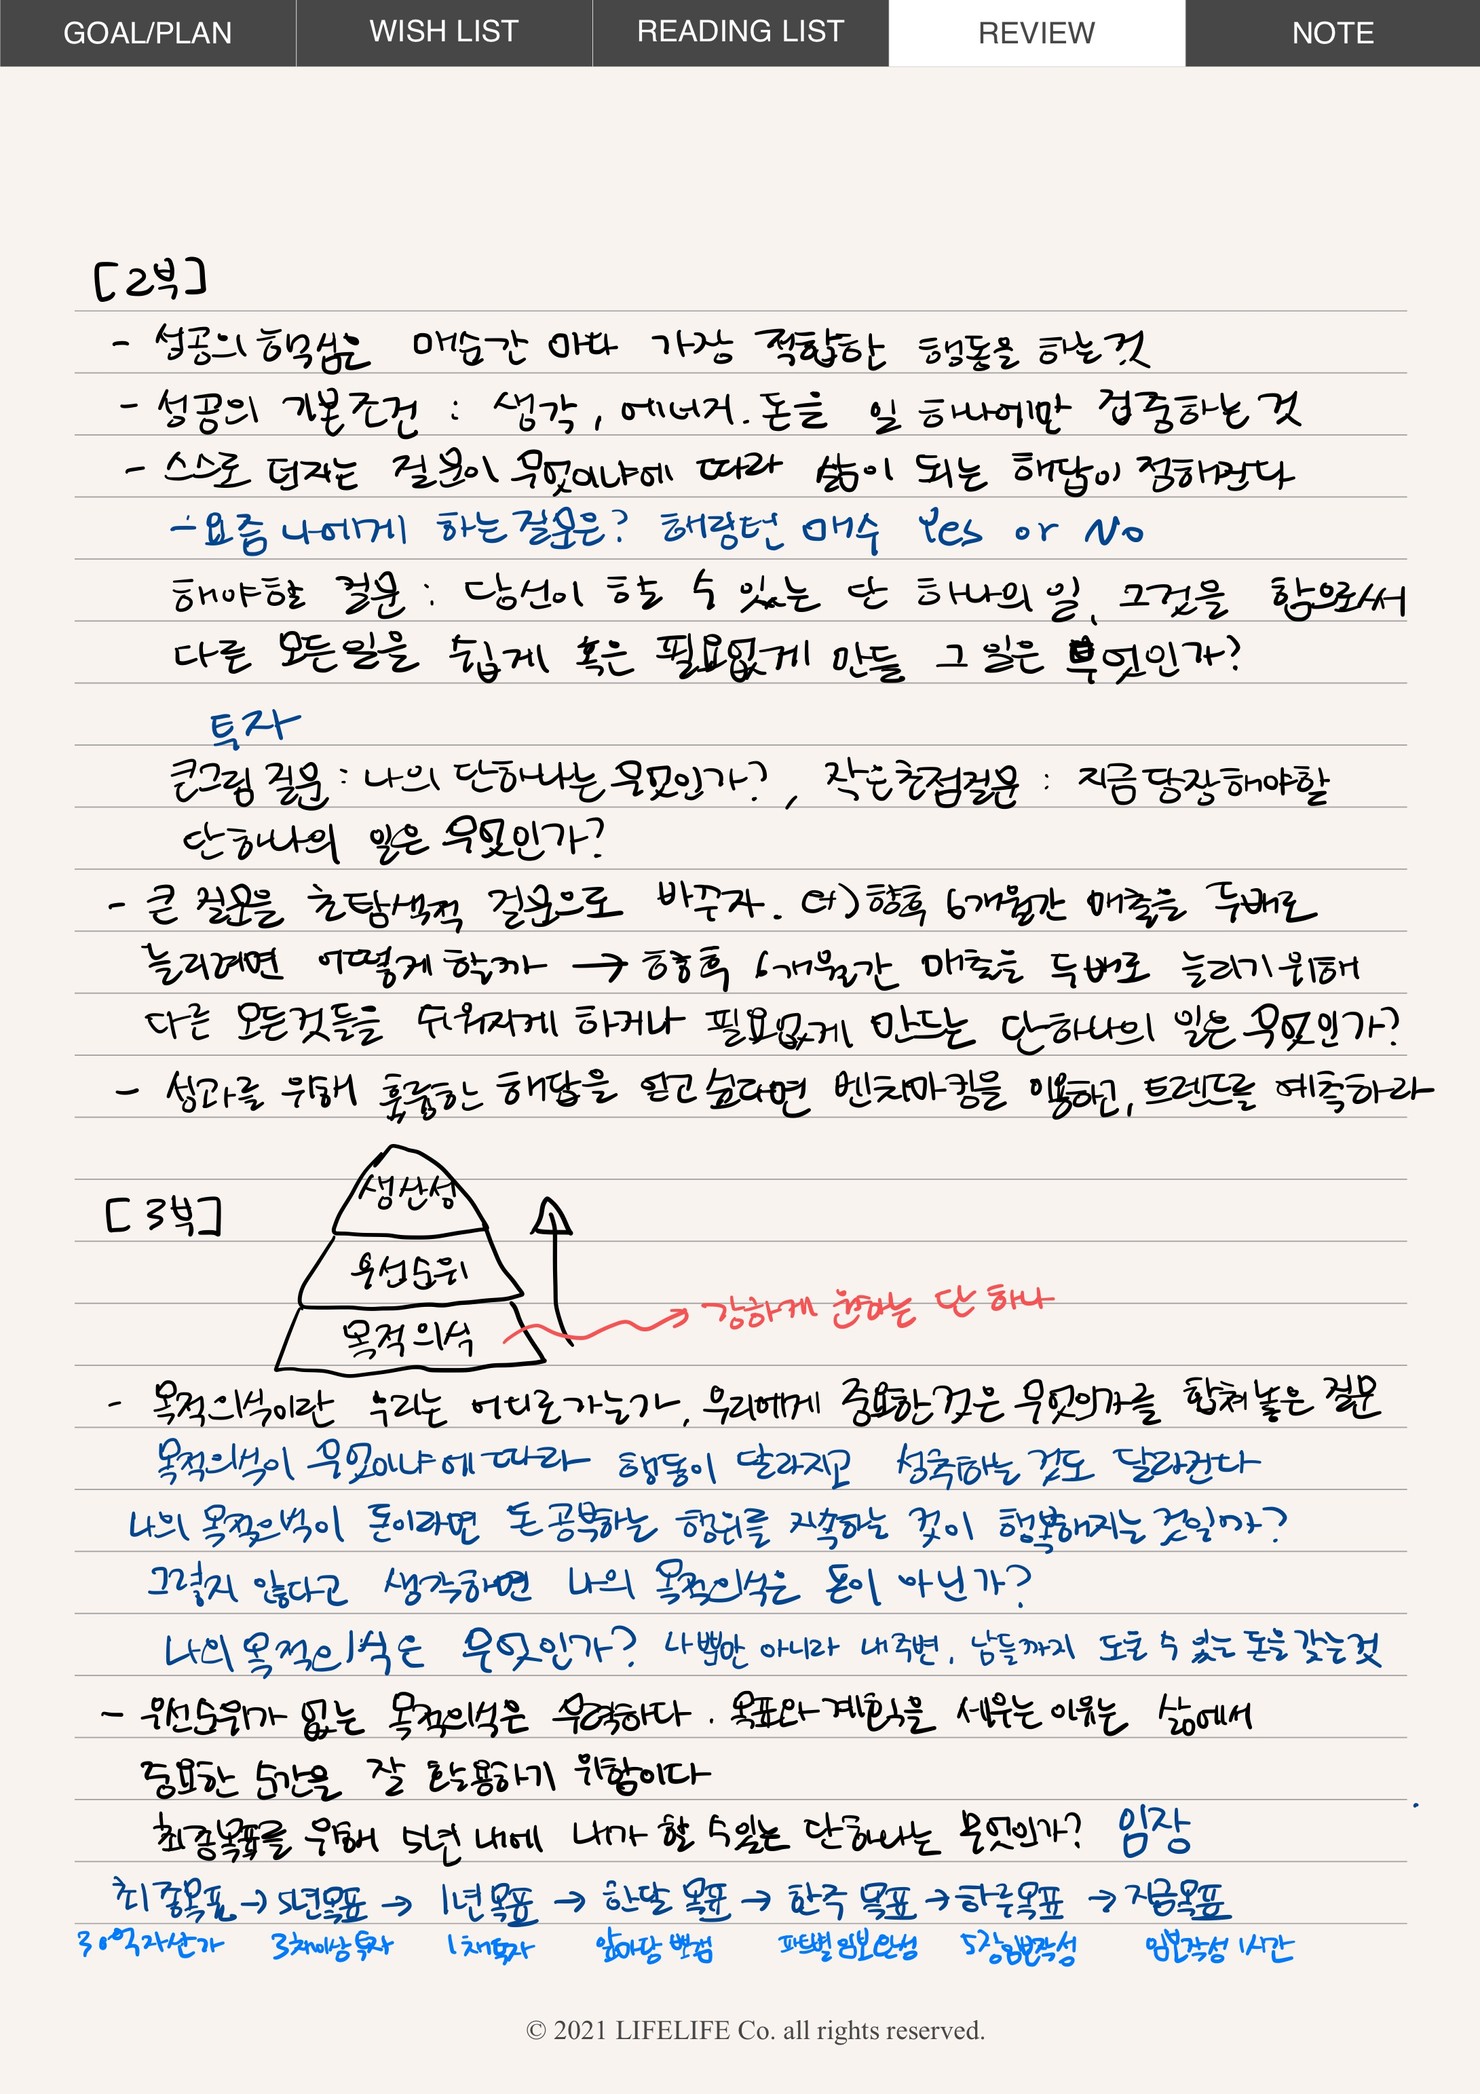 GOAL/PLAN WISH LIST READING LIST REVIEW NOTE
[2부]
- 성공의 핵심은 매순간 마다 가장 적합한 행동을 하는 것
- 성공의 기본조건 : 생각, 에너지. 돈을 일 하나에만 집중하는 것
- 스스로 던지는 질문이 무엇이냐에 따라 삶이 되는 해답이 정해진다
- 요즘 나에게 하는 질문은? 해링턴 매수 Yes or No
해야할 질문 : 당신이 할 수 있는 단 하나의 일, 그것을 함으로써
다른 모든일을 쉽게 혹은 필요없게 만들 그 일은 무엇인가?
투자
큰그림 질문 : 나의 단하나는 무엇인가?, 작은초점질문 : 지금당장해야할
단하나의 일은 무엇인가?
- 큰 질문을 초탐색적 질문으로 바꾸자. ex) 향후 6개월간 매출을 두배로
늘리려면 어떻게 할까 → 향후 6개월간 매출을 두배로 늘리기위해
다른 모든것들을 쉬워지게 하거나 필요없게 만드는 단하나의 일은 무엇인가?
- 성과를 위해 훌륭한 해답을 얻고싶다면 벤치마킹을 이용하고, 트렌드를 예측하라
[3부]
생산성
우선순위
목적의식 → 강하게 원하는 단 하나
- 목적의식이란 우리는 어디로가는가, 우리에게 중요한것은 무엇인가를 합쳐놓은 질문
목적의식이 무엇이냐에 따라 행동이 달라지고 성취하는 것도 달라진다
나의 목적의식이 돈이라면 돈 공부하는 행위를 지속하는 것이 행복해지는 것일까?
그렇지 않다고 생각하면 나의 목적의식은 돈이 아닌가?
나의 목적의식은 무엇인가? 나뿐만 아니라 내주변, 남들까지 도울 수 있는 돈을 갖는것
- 우선순위가 없는 목적의식은 무력하다. 목표와 계획을 세우는 이유는 삶에서
중요한 순간을 잘 활용하기 위함이다
최종목표를 위해 5년 내에 내가 할 수있는 단하나는 무엇인가? 임장
최종목표 → 5년목표 → 1년목표 → 한달 목표 → 한주 목표 → 하루목표 → 지금목표
30억자산가 3채이상투자 1채투자 앞마당 뽀갬 파트별 임보완성 5장임보작성 임보작성 1시간
© 2021 LIFELIFE Co. all rights reserved.